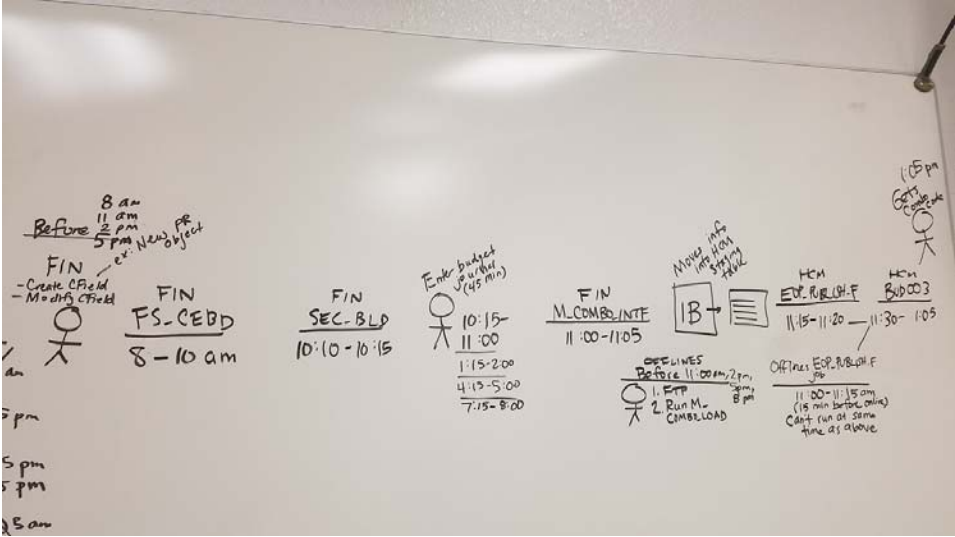 8 am
11 am
Before 2 pm
5 pm
ex: New PR
object
FIN
- Create CField
- Modify CField
FIN
FS_CEBD
8 - 10 am
FIN
SEC_BLD
10:10 - 10:15
Enter budget
journal
(45 min)
10:15-
11:00
1:15-2:00
4:15-5:00
7:15-8:00
FIN
M_COMBO_INTF
11:00-11:05
OFFLINES
Before 11:00am, 2pm,
5pm,
8 pm
1. FTP
2. Run M_
COMBO_LOAD
Moves info
into HCM
staging
table
IB
HCM
EOP_PUBLISH_F
11:15-11:20
HCM
BUD003
11:30- 1:05
Offlines EOP_PUBLISH_F
job
11:00-11:15am
(15 min before online)
Can't run at same
time as above
1:05 pm
Gets
Combo
Code
am
5 pm
5 pm
5 pm
5 am